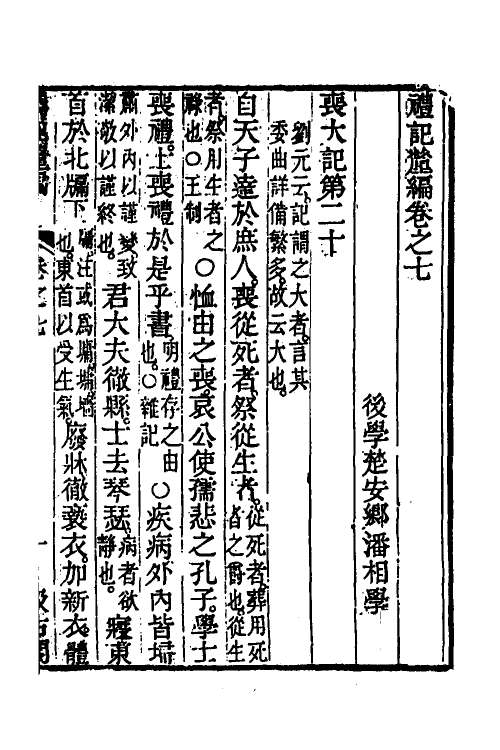 禮記釐編卷之七
後學楚安鄉潘相學
喪大記第二十
劉元云記謂之大者言其
委曲詳備繁多故云大也
自天子達於庶人喪從死者祭從生者從死者葬用死
者之爵也從生
者祭用生者之
祿也○王制
○恤由之喪哀公使孺悲之孔子學士
喪禮士喪禮於是乎書明禮存之由
也○雜記
○疾病外內皆埽
肅外內以謹變致
潔敬以謹終也
君大夫徹縣士去琴瑟病者欲
靜也
寢東
首於北牖下牖注或爲墉墉墻
也東首以受生氣
廢牀徹褻衣加新衣體
卷之七
一